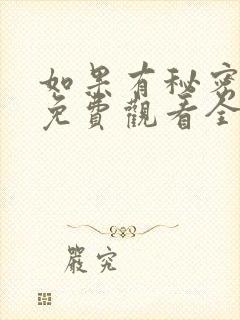 如果有秘密
免費觀看全
嚴究